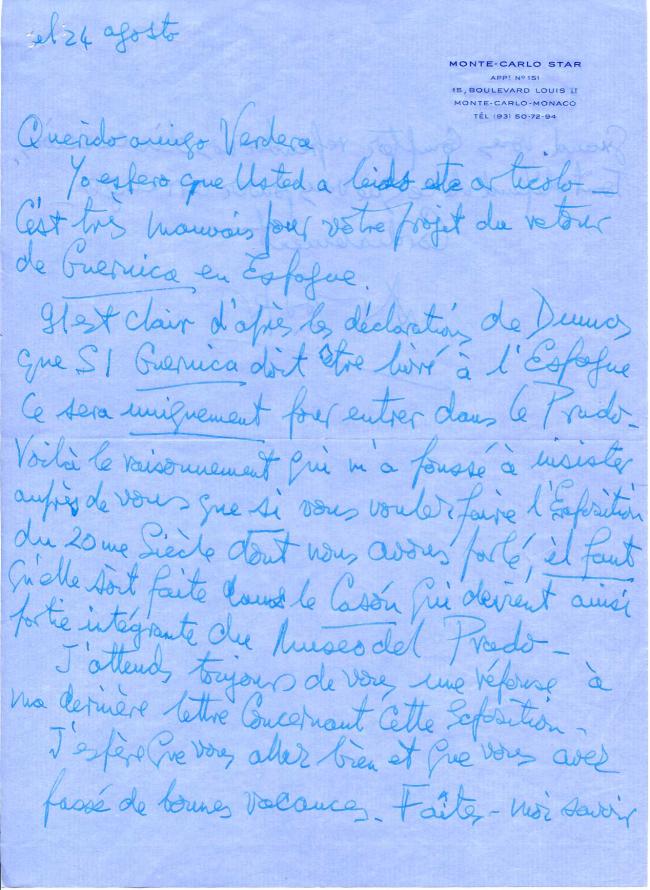 el 24 agosto
MONTE-CARLO STAR
APPT Nº 151
15, BOULEVARD LOUIS II
MONTE-CARLO-MONACO
TÉL (93) 50-72-94
Querido amigo Verdera
Yo espero que Usted a leido este articolo —
C'est très mauvais pour votre projet du retour
de Guernica en Espagne.
Il est clair d'après les déclarations de Dumas
que SI Guernica doit être livré à l'Espagne
ce sera uniquement pour entrer dans le Prado —
Voilà le raisonnement qui m'a poussé à insister
auprès de vous que si vous voulez faire l'Exposition
du 20me Siècle dont nous avons parlé, il faut
qu'elle soit faite dans le Casón qui devient ainsi
partie intégrante du Museo del Prado —
J'attends toujours de vous une réponse à
ma dernière lettre concernant cette Exposition —
J'espère que vous allez bien et que vous avez
passé de bonnes vacances. Faîtes-moi savoir